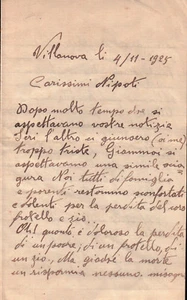 Villanova li 4/11-1925
Carissimi Nipoti
Dopo molto tempo che si
aspettavano vostre notizie
Ieri l'altro ci giunsero (oimè)
troppo triste,
si
aspettavamo una simile scia-
gura Noi tutti di famiglia
e parenti restammo sconfortati
e dolenti per la perdita del
fratello e zio.
Oh! quanto è doloroso la perdita
di un padre, di un fratello, di
un zio, Ma giacchè la morte
un risparmia nessuno